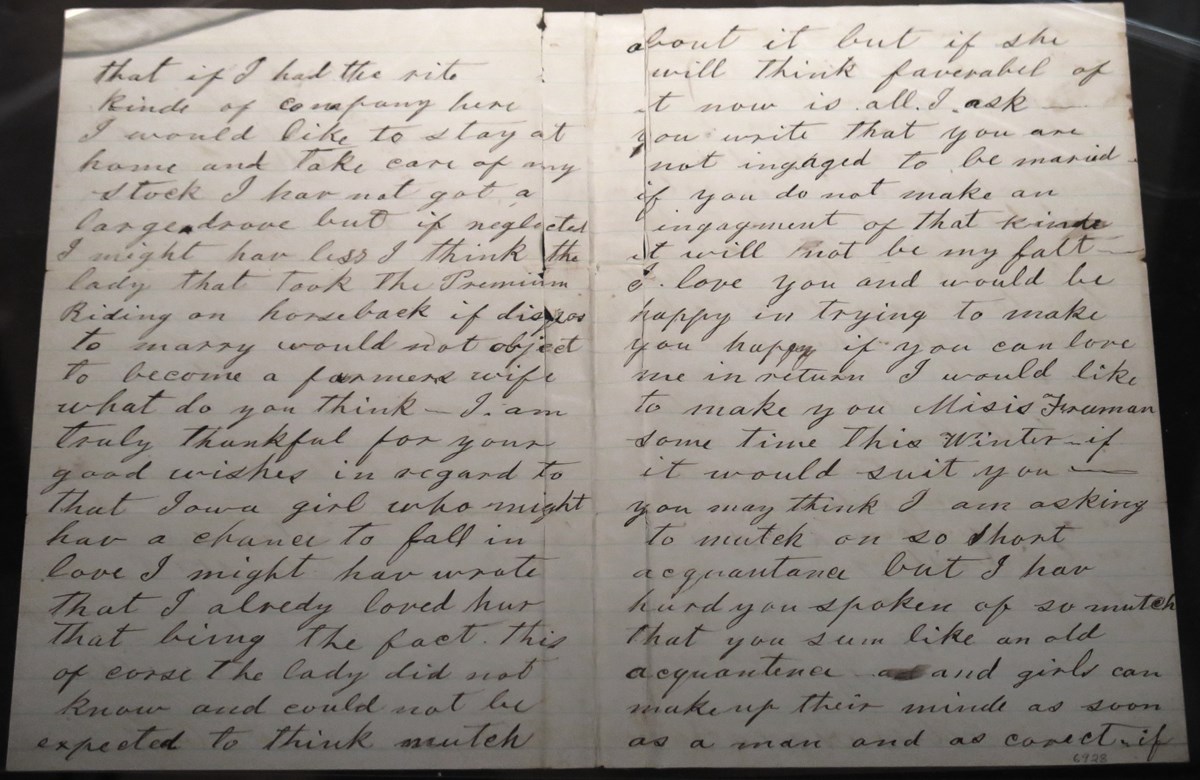 that if I had the rite
kinde of company here
I would like to stay at
home and take care of my
stock I hav not got a
large drove but if neglected
I might hav less I think the
lady that took the Premium
Riding on horseback if dispos
to marry would not object
to become a farmers wife
what do you think — I am
truly thankful for your
good wishes in regard to
that Iowa girl who might
hav a chance to fall in
love I might hav wrote
that I alredy loved hur
that biing the fact. this
of corse the lady did not
know and could not be
expected to think mutch
about it but if she
will think faverabel of
it now is all I ask —
you write that you are
not ingaged to be maried
if you do not make an
ingagment of that kinde
it will not be my falt —
I love you and would be
happy in trying to make
you happy if you can love
me in return I would like
to make you Misis Freeman
some time this Winter — if
it would suit you —
you may think I am asking
to mutch on so short
acquantance but I hav
hurd you spoken of so mutch
that you sum like an old
acquantence and girls can
make up their minde as soon
as a man and as corect — if
6928